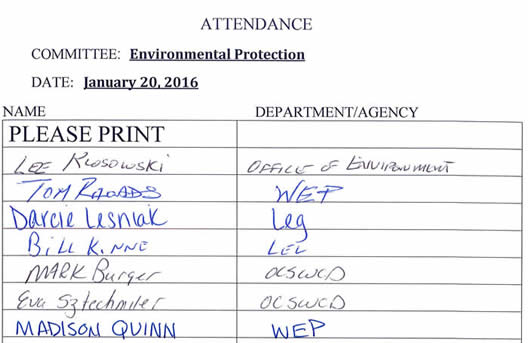 ATTENDANCE
COMMITTEE: Environmental Protection
DATE: January 20, 2016
NAME DEPARTMENT/AGENCY
PLEASE PRINT
LEE KLOSOWSKI OFFICE OF ENVIRONMENT
TOM RHOADS WEP
Darcie Lesniak Leg
BILL KINNE LEG
MARK Burger OCSWCD
Eva Sztechmiler OCSWCD
MADISON QUINN WEP